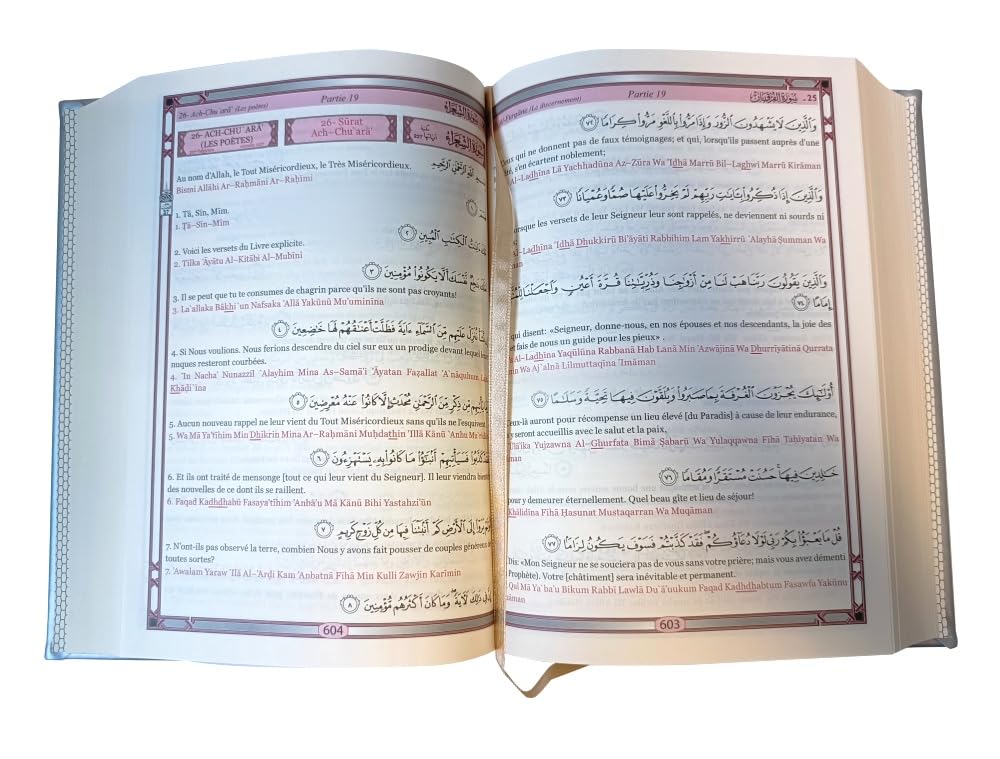 25- سورة الفرقان
Partie 19
(Le discernement)
وَالَّذِينَ لَا يَشْهَدُونَ الزُّورَ وَإِذَا مَرُّوا بِاللَّغْوِ مَرُّوا كِرَامًا ٧٢
qui ne donnent pas de faux témoignages; et qui, lorsqu'ils passent auprès d'une
s'en écartent noblement;
Al–Ladhīna Lā Yachhadūna Az–Zūra Wa 'Idhā Marrū Bil–Laghwi Marrū Kirāman
وَالَّذِينَ إِذَا ذُكِّرُوا بِآيَاتِ رَبِّهِمْ لَمْ يَخِرُّوا عَلَيْهَا صُمًّا وَعُمْيَانًا ٧٣
lorsque les versets de leur Seigneur leur sont rappelés, ne deviennent ni sourds ni
Al–Ladhīna 'Idhā Dhukkirū Bi'āyāti Rabbihim Lam Yakhirrū `Alayhā Şumman Wa
وَالَّذِينَ يَقُولُونَ رَبَّنَا هَبْ لَنَا مِنْ أَزْوَاجِنَا وَذُرِّيَّاتِنَا قُرَّةَ أَعْيُنٍ وَاجْعَلْنَا لِلْمُتَّقِينَ
إِمَامًا ٧٤
qui disent: «Seigneur, donne-nous, en nos épouses et nos descendants, la joie des
et fais de nous un guide pour les pieux» .
Al–Ladhīna Yaqūlūna Rabbanā Hab Lanā Min 'Azwājinā Wa Dhurriyātinā Qurrata
Wa Aj`alnā Lilmuttaqīna 'Imāman
أُولَٰئِكَ يُجْزَوْنَ الْغُرْفَةَ بِمَا صَبَرُوا وَيُلَقَّوْنَ فِيهَا تَحِيَّةً وَسَلَامًا ٧٥
Ceux-là auront pour récompense un lieu élevé [du Paradis] à cause de leur endurance,
y seront accueillis avec le salut et la paix,
Yujzawna Al–Ghurfata Bimā Şabarū Wa Yulaqqawna Fīhā Taĥīyatan Wa
خَالِدِينَ فِيهَا حَسُنَتْ مُسْتَقَرًّا وَمُقَامًا ٧٦
pour y demeurer éternellement. Quel beau gîte et lieu de séjour!
Khālidīna Fīhā Ĥasunat Mustaqarran Wa Muqāman
قُلْ مَا يَعْبَأُ بِكُمْ رَبِّي لَوْلَا دُعَاؤُكُمْ فَقَدْ كَذَّبْتُمْ فَسَوْفَ يَكُونُ لِزَامًا ٧٧
Dis: «Mon Seigneur ne se souciera pas de vous sans votre prière; mais vous avez démenti
Prophète). Votre [châtiment] sera inévitable et permanent.
Qul Mā Ya`ba'u Bikum Rabbī Lawlā Du`ā'uukum Faqad Kadhdhabtum Fasawfa Yakūnu
603
سورة الشعراء
Partie 19
26- Ach-Chu`arā' (Les poètes)
سورة الشعراء
26- Sūrat
Ach–Chu`arā'
26- ACH-CHU`ARĀ'
(LES POÈTES)
اللَّهِ الرَّحْمَٰنِ الرَّحِيمِ
Au nom d'Allah, le Tout Miséricordieux, le Très Miséricordieux.
Bismi Allāhi Ar–Raĥmāni Ar–Raĥīmi
١
1. Tā, Sīn, Mīm.
1. Ţā–Sīn–Mīm
آيَاتُ الْكِتَابِ الْمُبِينِ ٢
2. Voici les versets du Livre explicite.
2. Tilka 'Āyātu Al–Kitābi Al–Mubīni
بَاخِعٌ نَفْسَكَ أَلَّا يَكُونُوا مُؤْمِنِينَ ٣
3. Il se peut que tu te consumes de chagrin parce qu'ils ne sont pas croyants!
3. La`allaka Bākhi`un Nafsaka 'Allā Yakūnū Mu'uminīna
نُنَزِّلْ عَلَيْهِمْ مِنَ السَّمَاءِ آيَةً فَظَلَّتْ أَعْنَاقُهُمْ لَهَا خَاضِعِينَ ٤
4. Si Nous voulions. Nous ferions descendre du ciel sur eux un prodige devant lequel leurs
nuques resteront courbées.
4. 'In Nacha' Nunazzil `Alayhim Mina As–Samā'i 'Āyatan Fažallat 'A`nāquhum Lahā
Khāđi`īna
يَأْتِيهِمْ مِنْ ذِكْرٍ مِنَ الرَّحْمَٰنِ مُحْدَثٍ إِلَّا كَانُوا عَنْهُ مُعْرِضِينَ ٥
5. Aucun nouveau rappel ne leur vient du Tout Miséricordieux sans qu'ils ne l'esquivent
5. Wa Mā Ya'tīhim Min Dhikrin Mina Ar–Raĥmāni Muĥdathin 'Illā Kānū `Anhu
كَذَّبُوا فَسَيَأْتِيهِمْ أَنْبَاءُ مَا كَانُوا بِهِ يَسْتَهْزِئُونَ ٦
6. Et ils ont traité de mensonge [tout ce qui leur vient du Seigneur]. Il leur viendra bientôt
des nouvelles de ce dont ils se raillent.
6. Faqad Kadhdhabū Fasaya'tīhim 'Anbā'u Mā Kānū Bihi Yastahzi'ūn
يَرَوْا إِلَى الْأَرْضِ كَمْ أَنْبَتْنَا فِيهَا مِنْ كُلِّ زَوْجٍ كَرِيمٍ ٧
7. N'ont-ils pas observé la terre, combien Nous y avons fait pousser de couples généreux de
toutes sortes?
7. 'Awalam Yaraw 'Ilā Al–'Arđi Kam 'Anbatnā Fīhā Min Kulli Zawjin Karīmin
فِي ذَٰلِكَ لَآيَةً وَمَا كَانَ أَكْثَرُهُمْ مُؤْمِنِينَ ٨
604